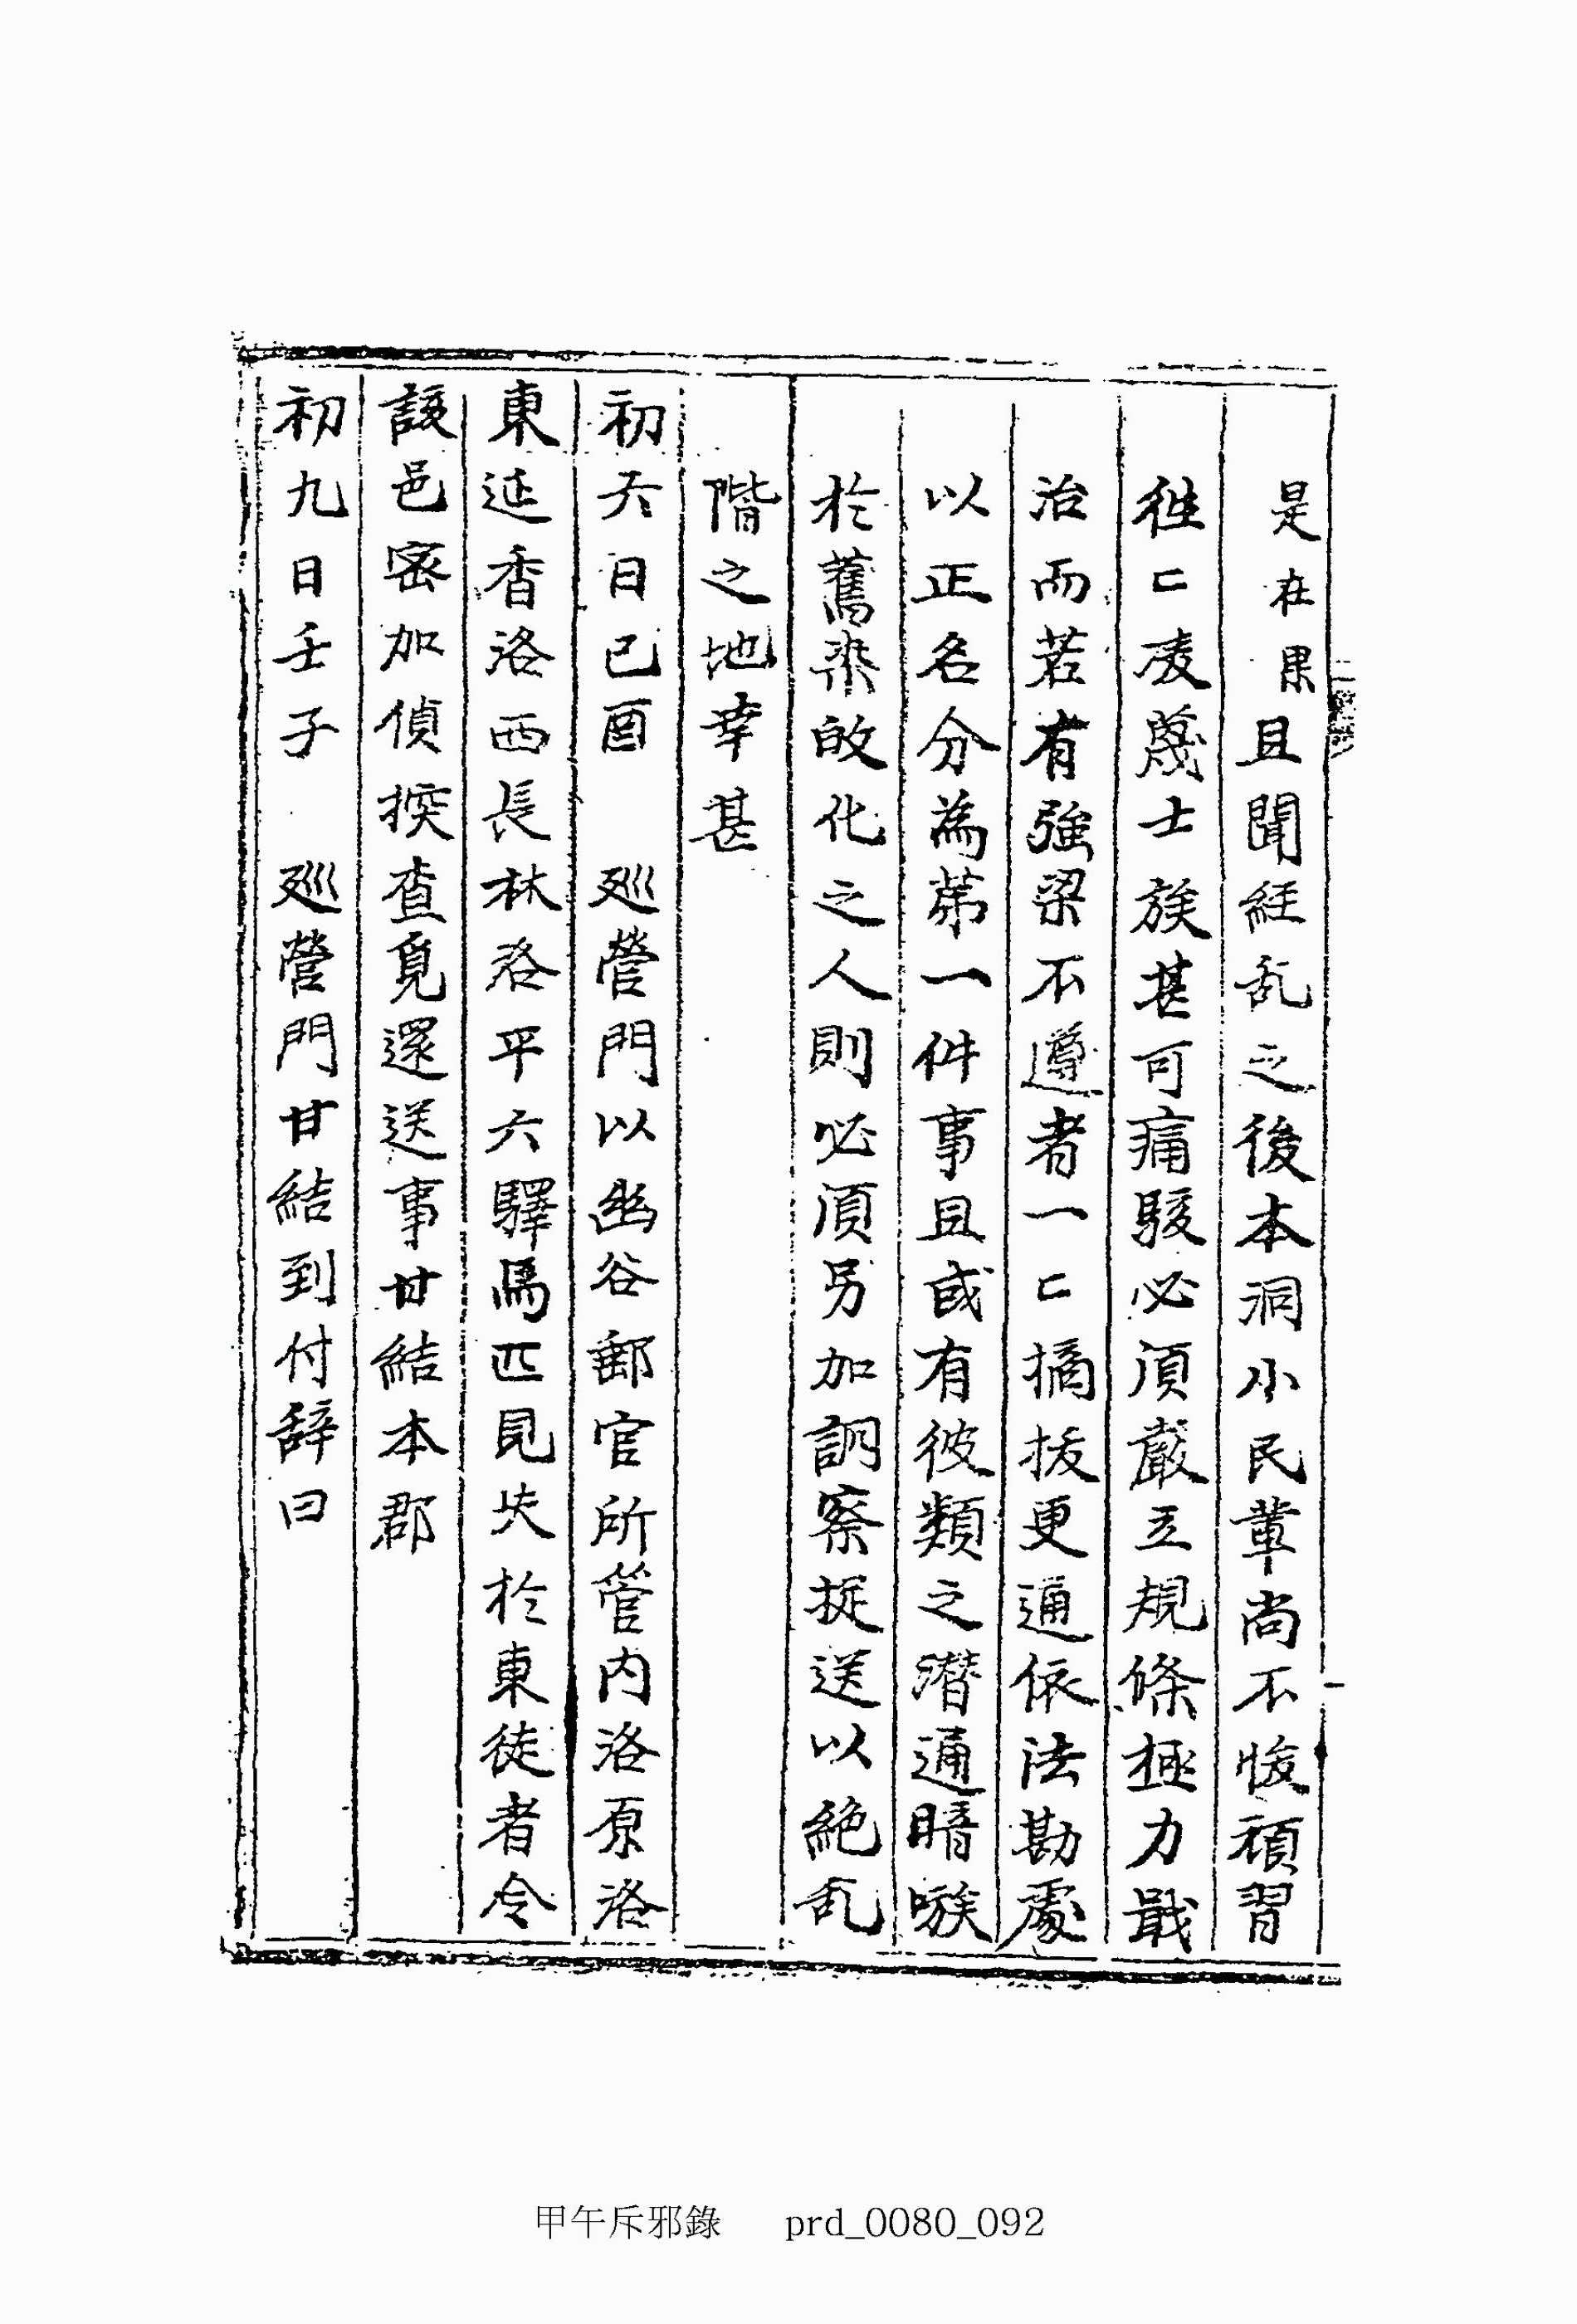 是在果且聞經乱之後本洞小民輩尚不悛頑習
徃〻凌蔑士族甚可痛駭必須嚴立規條極力戢
治而若有強梁不遵者一〻摘拔更通依法勘處
以正名分為苐一件事且或有彼類之潜通暗嗾
於舊染敀化之人則必須另加詗察捉送以絶乱
階之地幸甚
初六日己酉　巡營門以幽谷郵官所管内洛原洛
東延香洛西長林洛平六驛馬匹見失於東徒者令
該邑密加偵探查覓還送事甘結本郡
初九日壬子　巡營門甘結到付辞曰
甲午斥邪錄 prd_0080_092